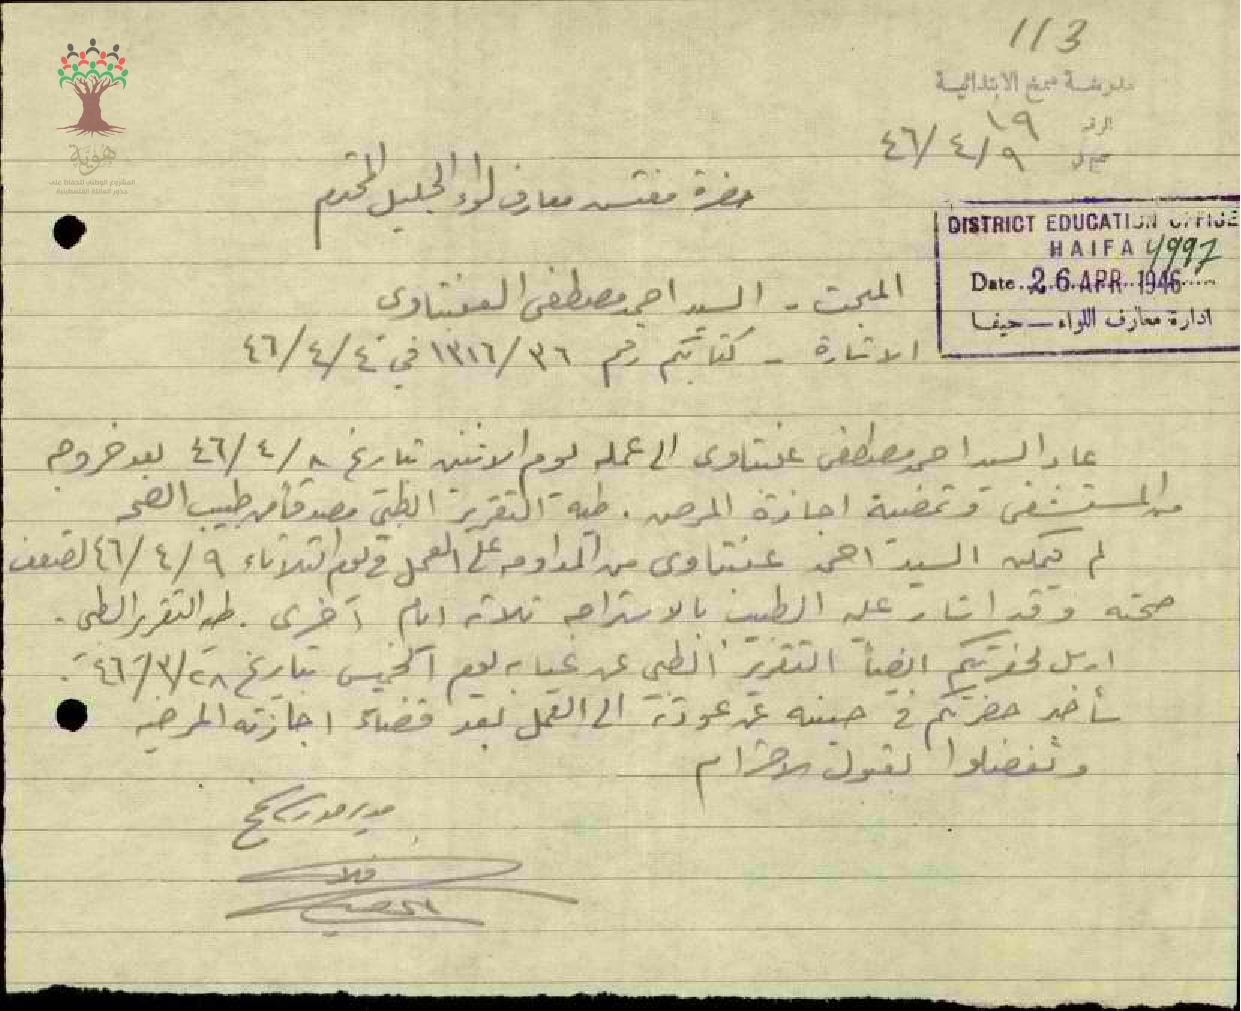 113
مدرسة سمخ الابتدائية
الرقم ١٩
٤٦/٤/٩
هوية
المشروع الوطني للحفاظ على
جذور العائلة الفلسطينية
حضرة مفتش معارف لواء الجليل المحترم
DISTRICT EDUCATION OFFICE
HAIFA 4997
Date 26 APR 1946
ادارة معارف اللواء — حيفا
المبحث - السيد احمد مصطفى العفنتاوى
الاشارة - كتابكم رقم ١٣١٦/٣٦ في ٤٦/٤/٤
عاد السيد احمد مصطفى عنبتاوى الى عمله يوم الاثنين بتاريخ ٤٦/٤/٨ بعد خروجه
من المستشفى وتمضية اجازة المرض . طيه التقرير الطبي مصدقا من طبيب الصحه
لم يتمكن السيد احمد عنبتاوى من المداومه على العمل في يوم الثلاثاء ٤٦/٤/٩ لضعف
صحته وقد اشار عليه الطبيب بالاستراحه ثلاثه ايام أخرى . طيه التقرير الطبي .
ارسل لحضرتكم ايضاً التقرير الطبي عن غيابه يوم الخميس بتاريخ ٤٦/٣/٢٨ .
سأخبر حضرتكم في حينه عن عودته الى العمل بعد قضاء اجازته المرضيه
وتفضلوا بقبول الاحترام
مدير مدرسة سمخ